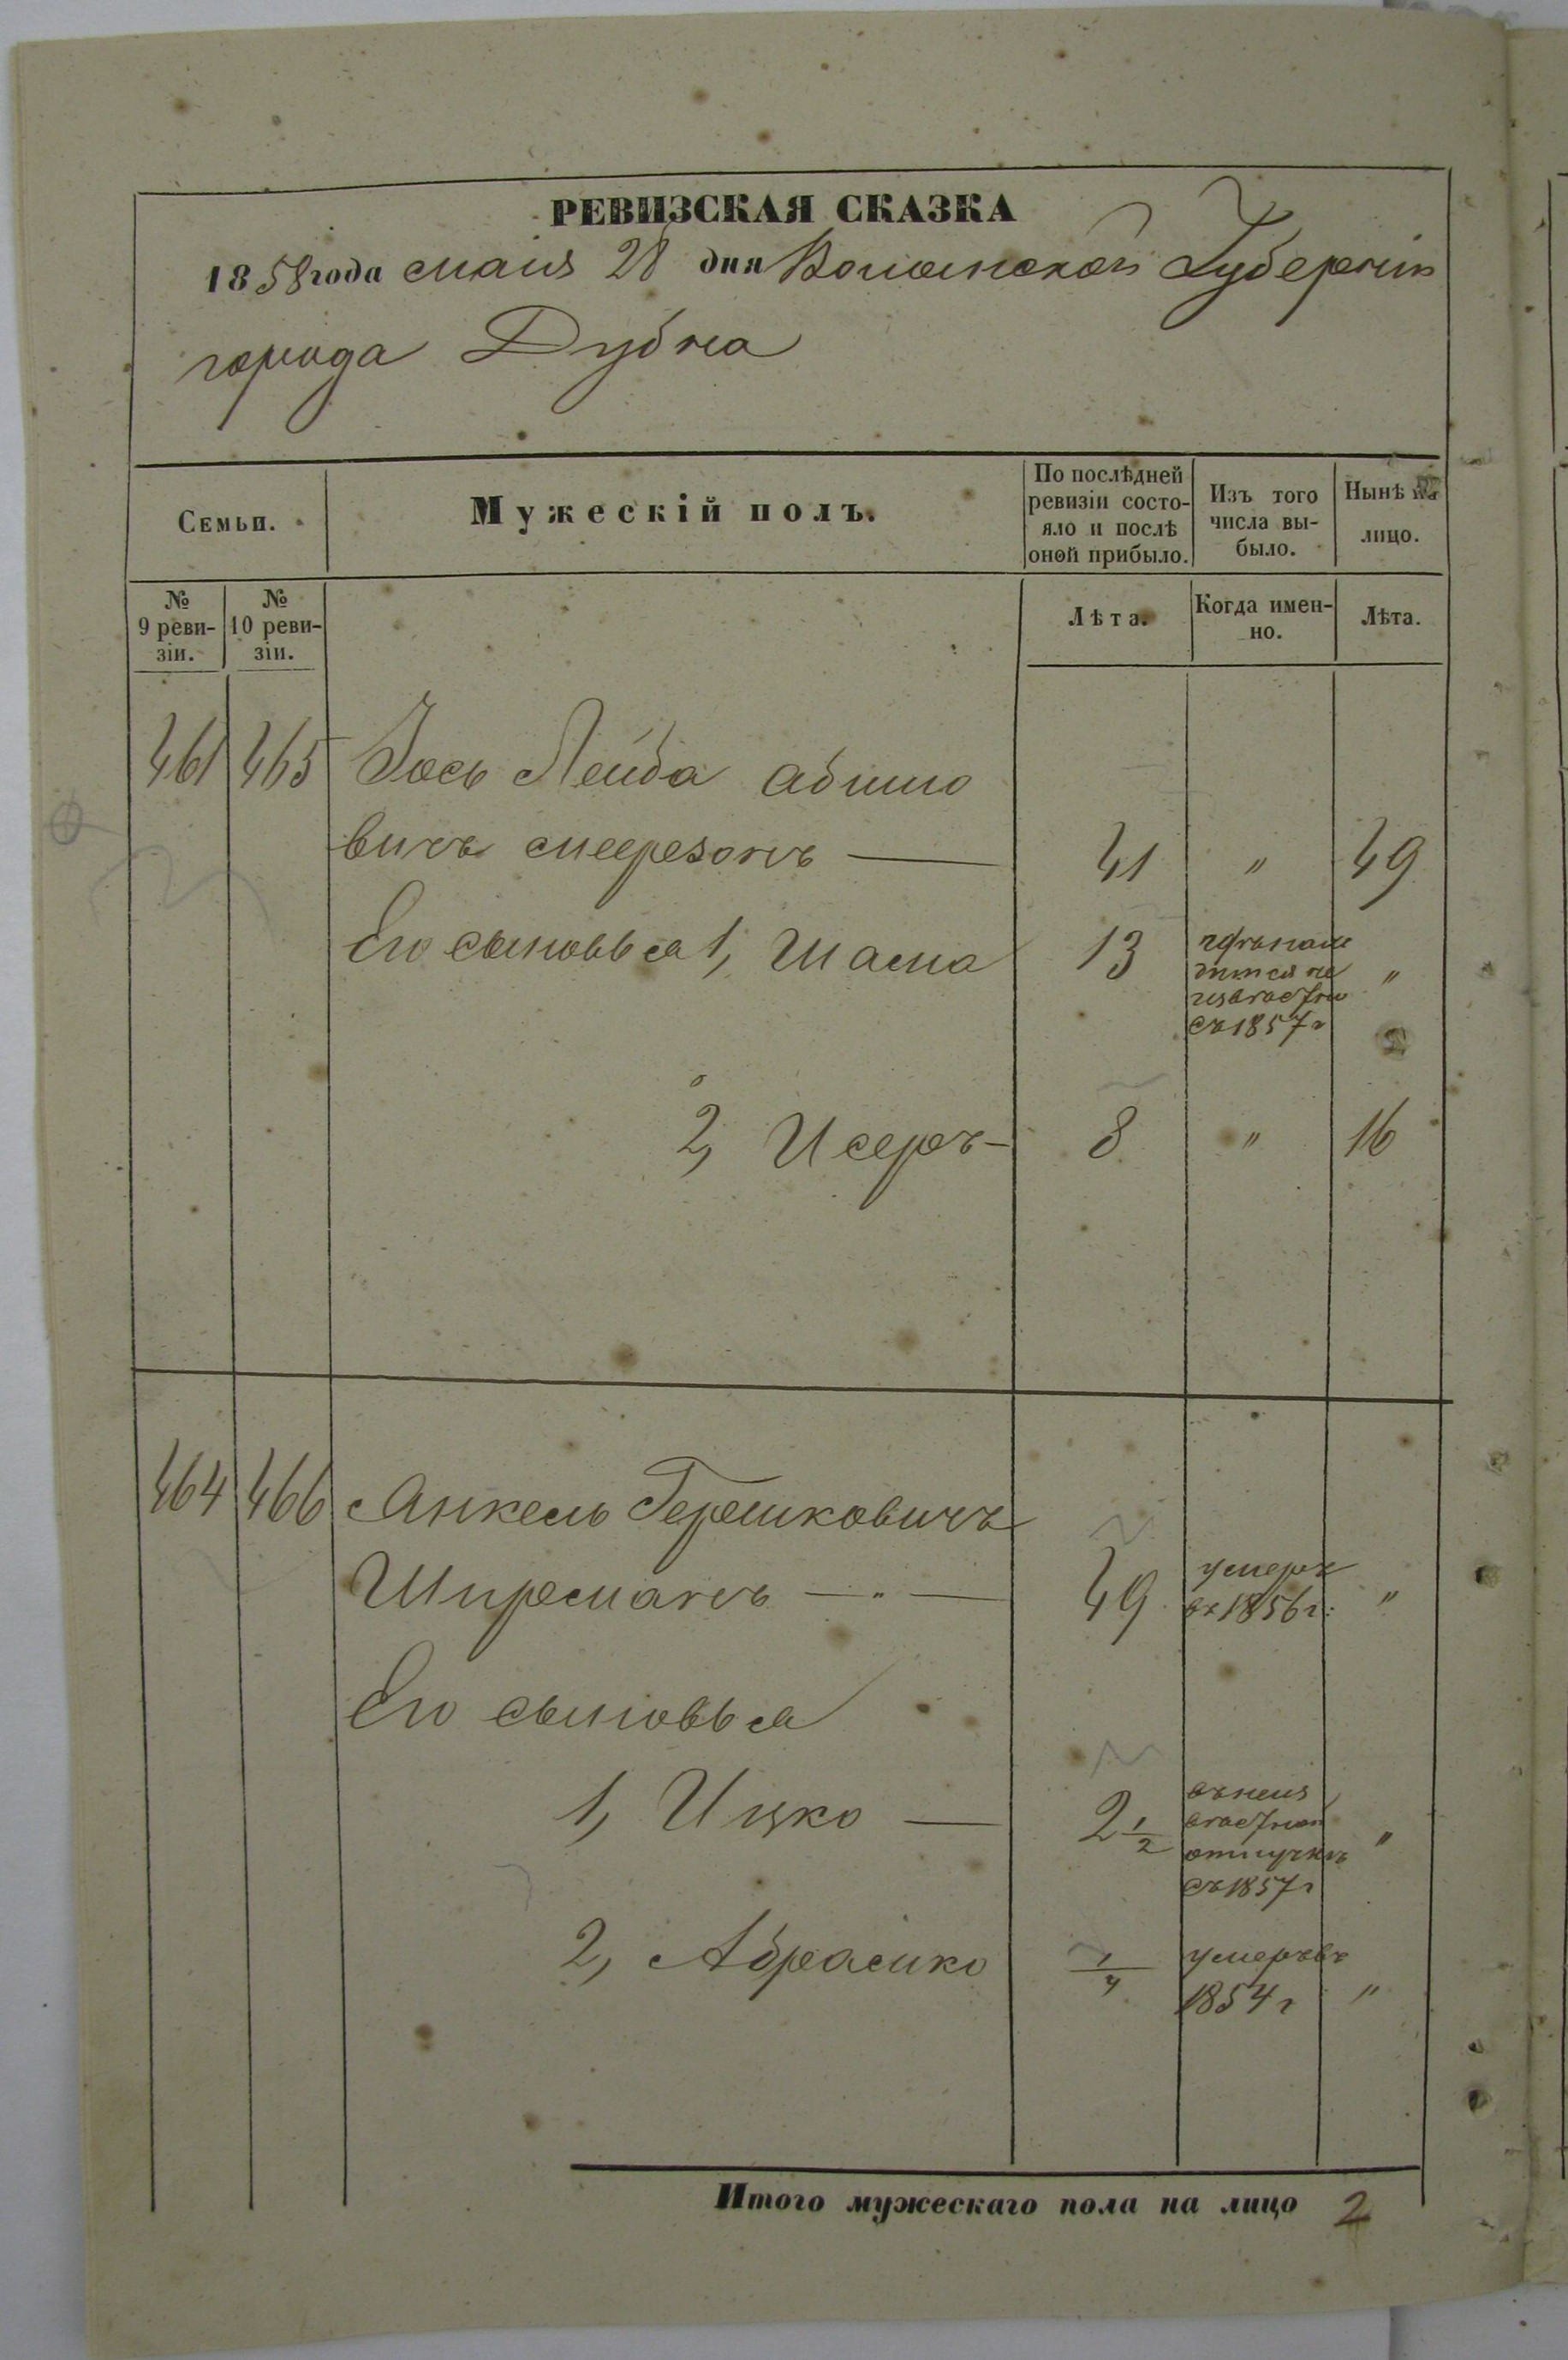 РЕВИЗСКАЯ СКАЗКА
1858 года маія 28 дня Волынской Губерніи
города Дубна
Семьи.
Мужескій полъ.
По послѣдней ревизіи состо-
яло и послѣ оной прибыло.
Изъ того числа вы-
было.
Нынѣ на лицо.
№ 9 реви-
зіи.
№ 10 реви-
зіи.
Лѣта.
Когда имен-
но.
Лѣта.
461 465 Іось Лейба Абшмо
вичъ Меерзонъ — 41 " 49
Его сыновья 1, Шама 13
съ 1857 г "
2, Исеръ — 8 " 16
464 466 Анкель Гершковичъ
Ширманъ — " — 49 умеръ
въ 1856 г: "
Его сыновья
1, Ицко — 2 1/2 въ неиз
вѣстной
отлучкѣ
съ 1857 г "
2, Абрамко 1/4 умеръ въ
1854 г "
Итого мужескаго пола на лицо 2